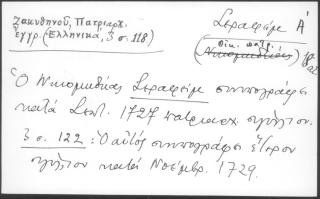 Ζακυθηνοῦ, Πατριαρχ.
ἔγγρ. (Ἑλληνικά, 3 σ. 118)
Σεραφείμ Α΄
Οἰκ. πατρ.
(Νικομηδείας)
Ὁ Νικομηδείας Σεραφείμ συνυπογράφει
κατά Σεπτ. 1727 πατριαρχ. σιγίλλιον.
3 σ. 122 : Ὁ αὐτός συνυπογράφει ἕτερον
σιγίλλιον κατά Νοέμβρ. 1729.